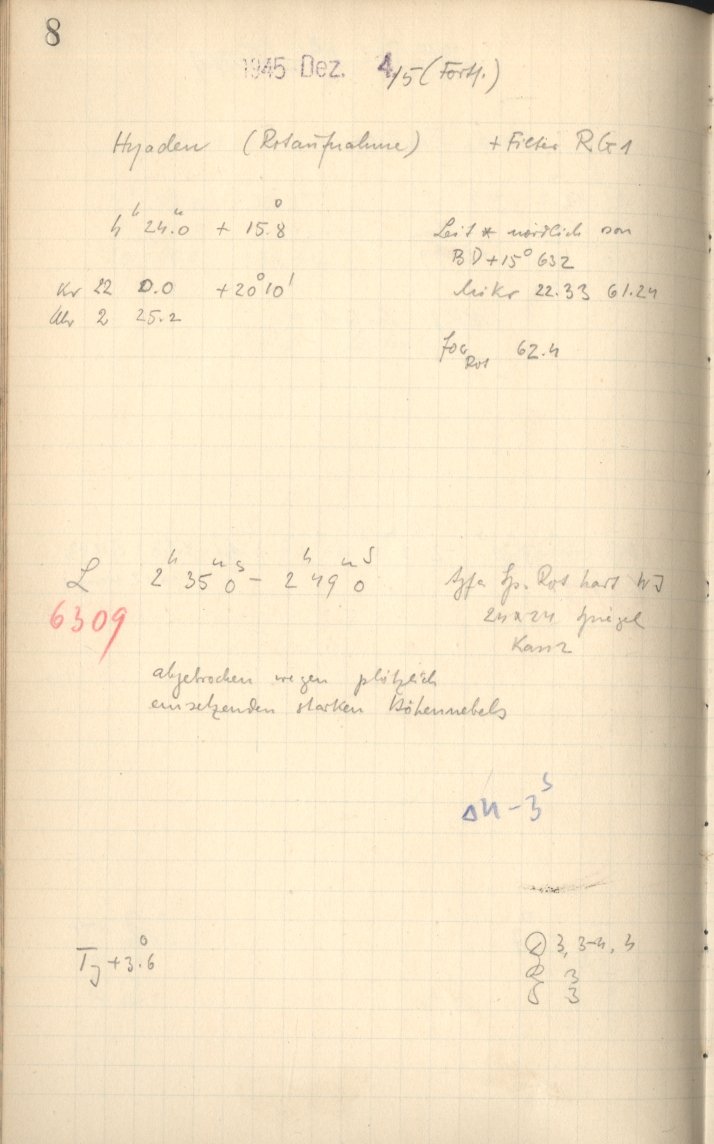 8
1945 Dez. 4/5 (Forts.)
Hyaden (Rotaufnahme) + Filter RG1
4h 24.m0 + 15.°8
Leit * nördlich von
BD+15° 632
Kr 22 0.0 +20°10'
Mikr 22.33 61.24
Uhr 2 25.2
Foc Rot 62.4
L 2h 35m 0s - 2h 49m 0s
Agfa Sp. Rot hart
6309
24x24 Spiegel
Kass 2
abgebrochen wegen plötzlich
einsetzenden starken Höhennebels
Δu - 3s
TJ +3.°6
3, 3-4, 3
3
3